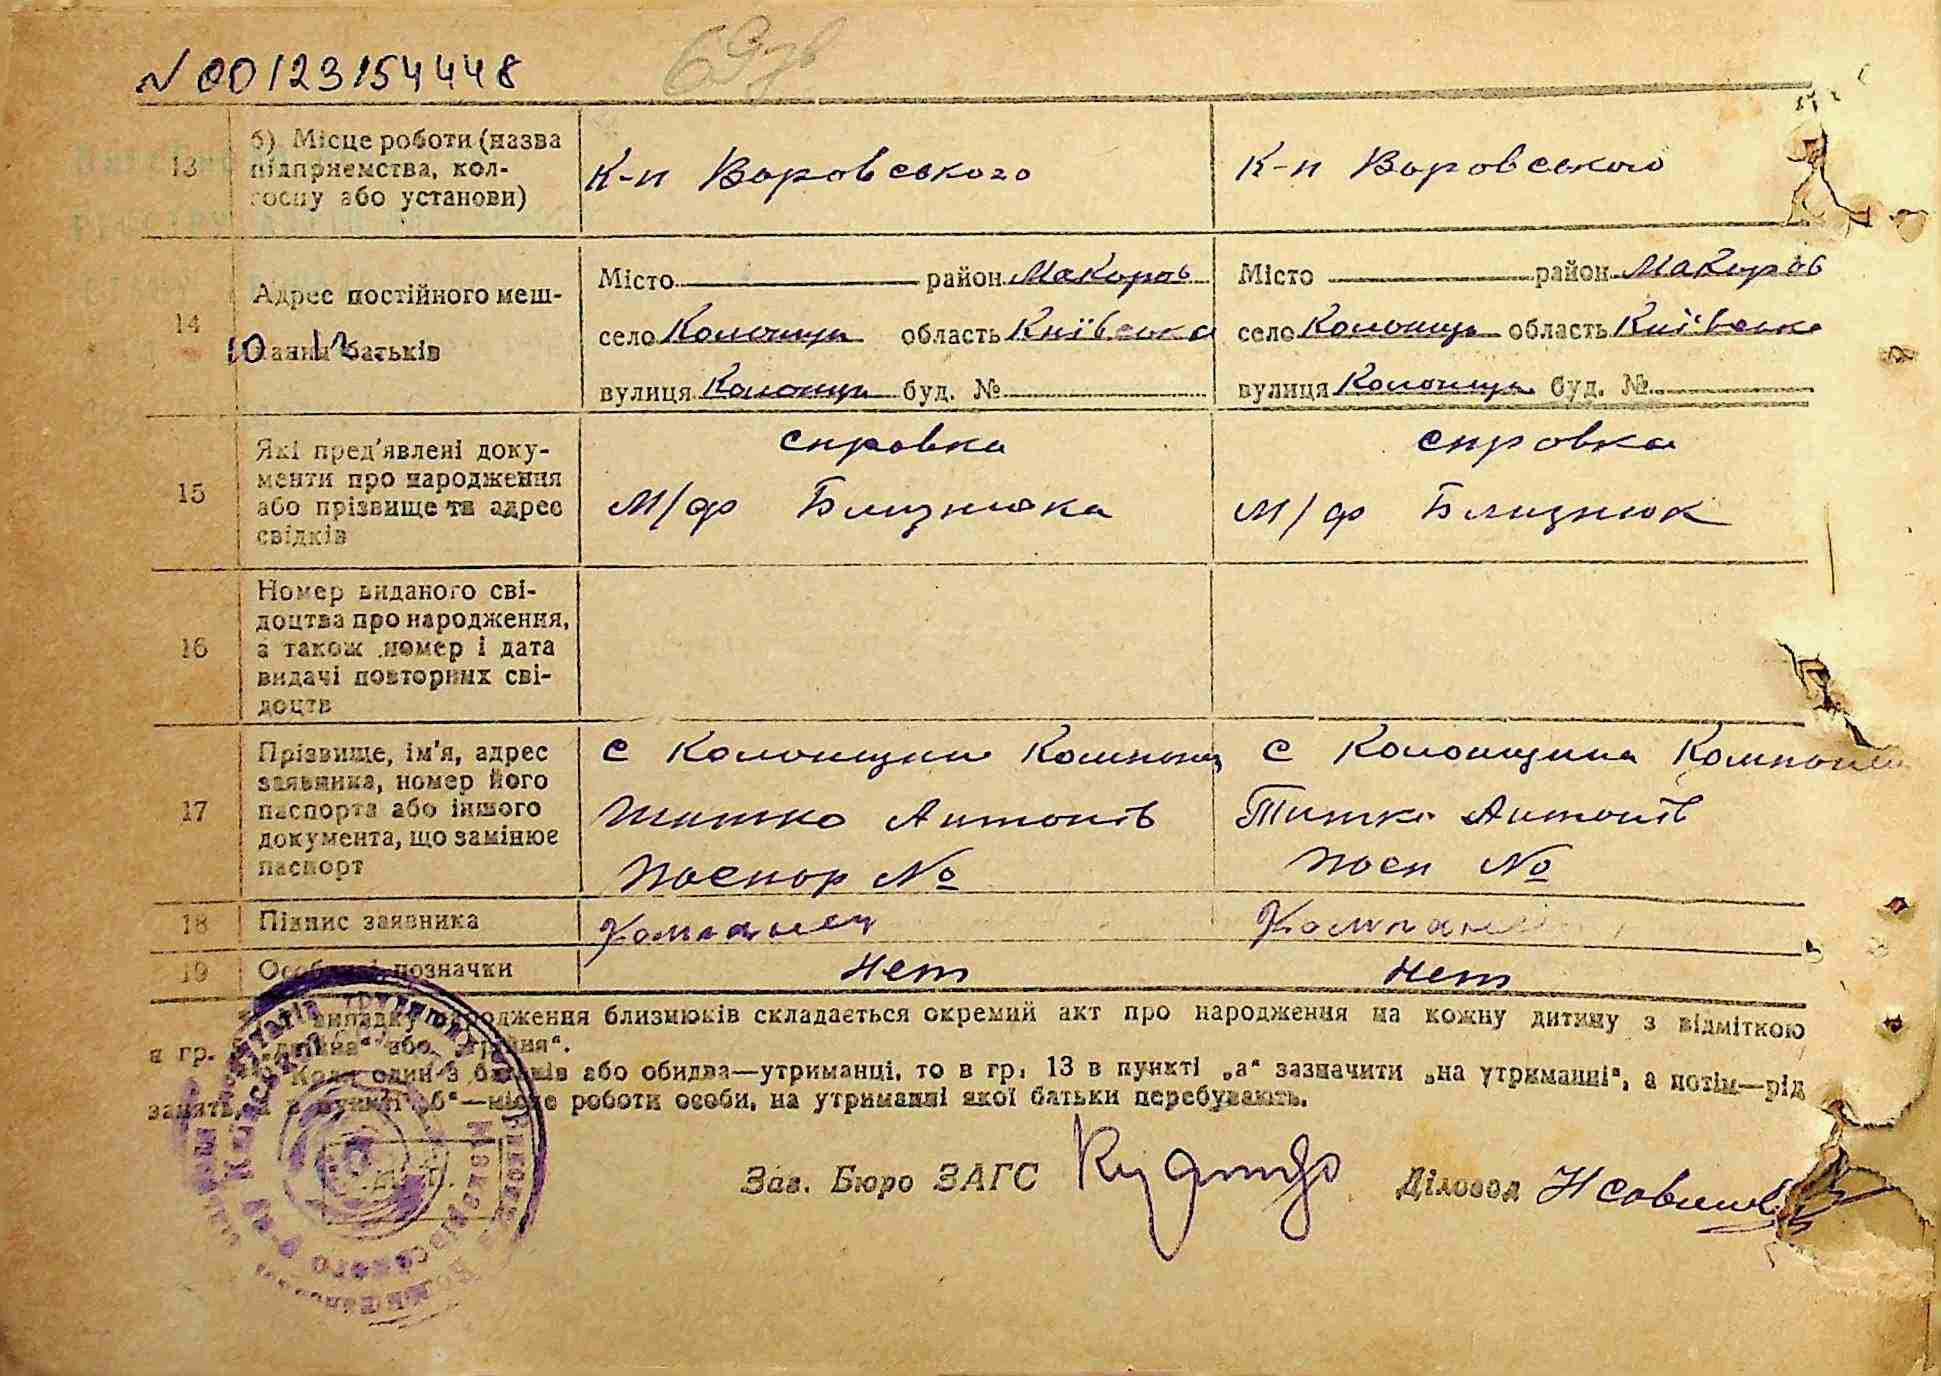 N 00123154448
13
б) Місце роботи (назва
підприємства, кол-
госпу або установи)
К-п Воровського
К-п Воровського
14
Адрес постійного меш-
кання батьків
10 12
Місто район Макоров
село Колонщи область Київська
вулиця Колонщи буд. №
Місто район Макоров
село Колонщи область Київська
вулиця Колонщи буд. №
15
Які пред'явлені доку-
менти про народження
або прізвище та адрес
свідків
справка
М/ф Близнюка
справка
М/ф Близнюк
16
Номер виданого сві-
доцтва про народження,
а також номер і дата
видачі повторних сві-
доцтв
17
Прізвище, ім'я, адрес
заявника, номер його
паспорта або іншого
документа, що замінює
паспорт
с Колонщини Компонец
Титко Антонів
Паспор №
с Колонщина Компонец
Титко Антонів
Посп №
18
Підпис заявника
Компанец
Компанец
19
Особливі позначки
нет
нет
випадку народження близнюків складається окремий акт про народження на кожну дитину з відміткою
в гр. „двійня“ або „трійня“.
Коли один з батьків або обидва—утриманці, то в гр. 13 в пункті „а“ зазначити „на утриманні“, а потім—рід
занять, а в пункті „б“—місце роботи особи, на утриманні якої батьки перебувають.
Зав. Бюро ЗАГС
Діловод